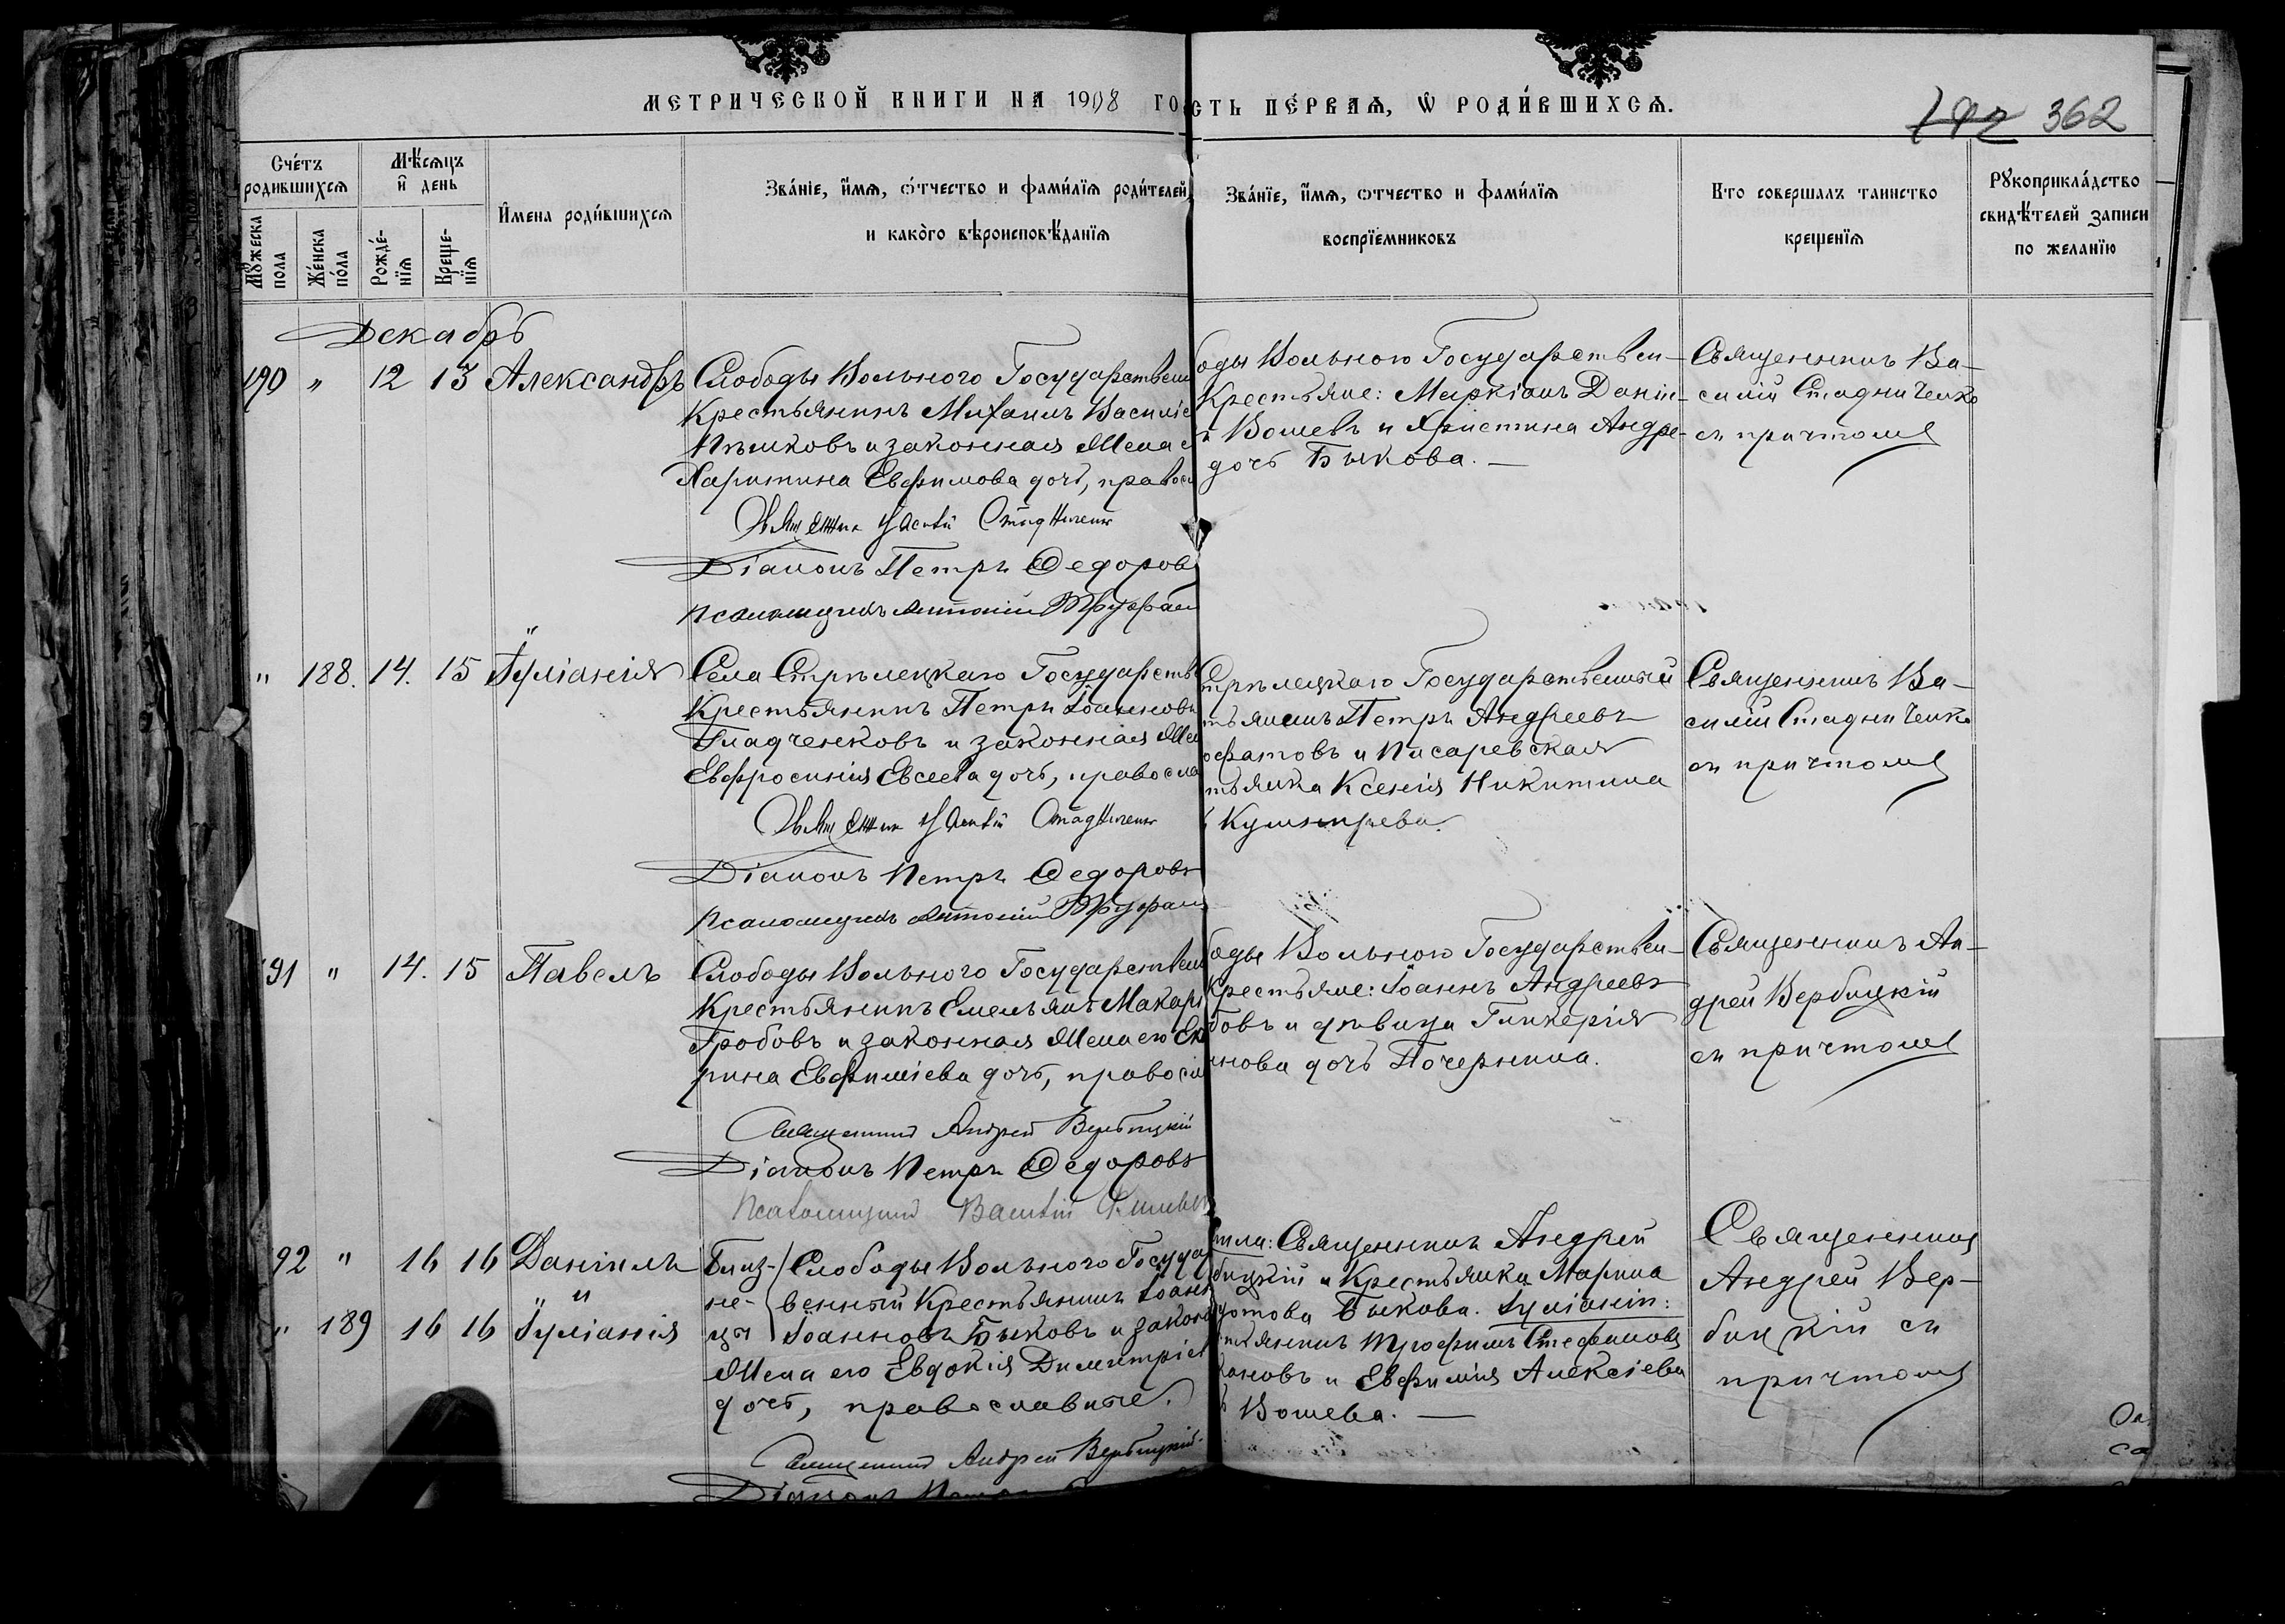 МЕТРИЧЕСКОЙ КНИГИ НА 1908 ГО
СТЬ ПЕ́РВАѦ, Ѡ РОДИ́ВШИХСѦ.
362
Сче́тъ родившихсѧ
Мѣ́сѧцъ и҆ день
Мꙋ́жеска пола
Же́нска по́ла
Рожде́-нїѧ
Креще-нїѧ
И҆мена роди́вшихсѧ
Зва́нїе, и҆́мѧ, о́тчество и фами́лїѧ роди́телей,
и како́го вѣроисповѣ́данїѧ
Зва́нїе, и҆́мѧ, ѻтчество и фами́лїѧ
воспрїемниковъ
Кто совершалъ таинство
крещенїѧ
Рꙋкоприкла́дство
свидѣ́телей записи
по желанїю
Декабрь
190 " 12 13 Александръ
Слободы Вольного Государствен
Крестьянинъ Михаилъ Василіе
Пѣшковъ и законная жена е
Харитина Евфимова дочь, правосл
Священник Василій Стадниченко
Діаконъ Петръ Ѳедоровъ
Псаломщикъ Антоній Труфан
боды Вольного Государствен-
Крестьяне: Маркіанъ Даніи-
въ Вошевъ и Христина Андре-
дочь Быкова. —
Священникъ Ва-
силій Стадниченко
съ причтомъ
" 188. 14. 15 Іуліанія
Села Стрѣлецкаго Государств
Крестьянинъ Петръ Іоанновъ
Гладченковъ и законная же
Евфросинія Евсеева дочь, правосла
Священник Василій Стадниченко
Діаконъ Петръ Ѳедоровъ
Псаломщикъ Антоній Труфан
Стрѣлецкаго Государственный
тьянинъ Петръ Андреевъ
офатовъ и Писаревская
тьянка Ксенія Никитина
Священникъ Ва-
силій Стадниченко
съ причтомъ
191 " 14. 15 Павелъ
Слободы Вольного Государствен
Крестьянинъ Емельянъ Макарі
Гробовъ и законная жена его Ек
рина Евфиміева дочь, правосл
Священникъ Андрей Вербицкій
Діаконъ Петръ Ѳедоровъ
Псаломщикъ Василій
боды Вольного Государствен-
Крестьяне: Іоаннъ Андреевъ
бовъ и дѣвица Гликерія
нова дочь Почернина.
Священникъ Ан-
дрей Вербицкій
съ причтомъ
92 " 16 16 Даніилъ
" 189 16 16 Іуліанія
Близ-не-цы
Слободы Вольного Госуда
венный Крестьянинъ Іоанн
Іоанновъ Быковъ и законн
жена его Евдокія Димитріев
дочь, православные.
Священникъ Андрей Вербицкій.
Діаконъ
іила: Священникъ Андрей
бицкій и Крестьянка Марина
дотова Быкова. Іуліаніи:
тьянинъ Трофимъ Стефановъ
кановъ и Евфимія Алексіева
Вошева. —
Священникъ
Андрей Вер-
бицкій съ
причтомъ